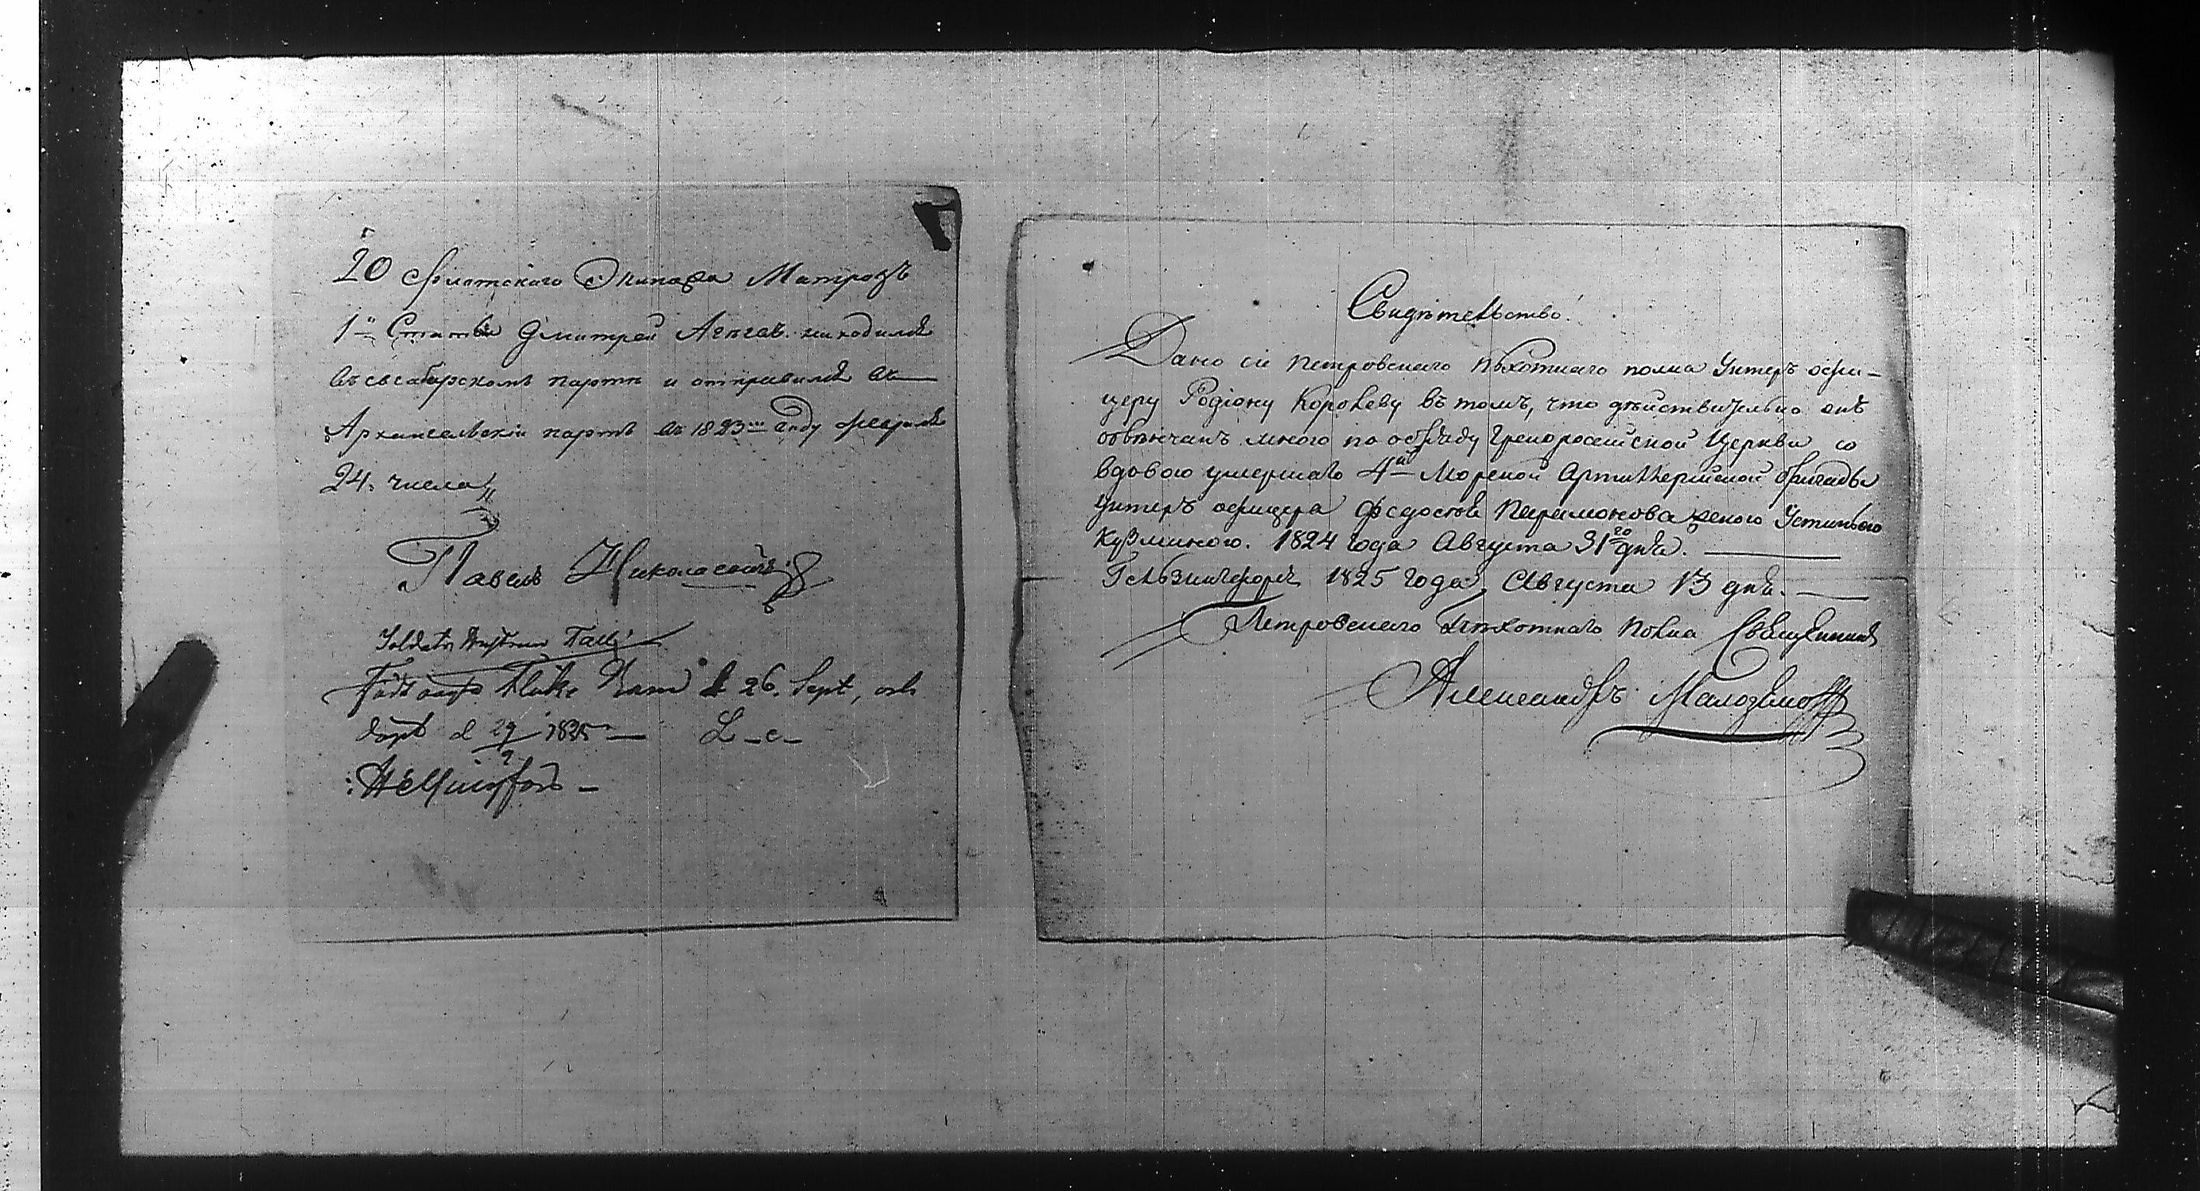 20 Флотскаго Экипажа Матрозъ
1й Статьи Дмитрей находился
въ свеаборскомъ парте и отправился въ
Архангельскiй партъ въ 1823м году февраля
24. числа
Павелъ Николаевъ
Soldats Enkan
Födt oägta Flicke Barn d 26. Sept, och
döpt d 29/9 1825 — L_c_
: Helsingfors —
Свидѣтельство
Дано сiе Петровскаго пѣхотнаго полка Унтеръ офи-
церу Родiону Королеву въ томъ, что дѣйствительно онъ
обвѣнчанъ мною по обряду Грекороссiйской Церкви со
вдовою умершаго 4й Морской Артиллерийской бригады
Унтеръ офицера Парамонова женою Устиньею
Кузминою. 1824 года Августа 31го дня. —
Гельзингфорсъ 1825 года Августа 13 дня. —
Петровскаго Пѣхотнаго Полка Священникъ
Александръ Малоземовъ